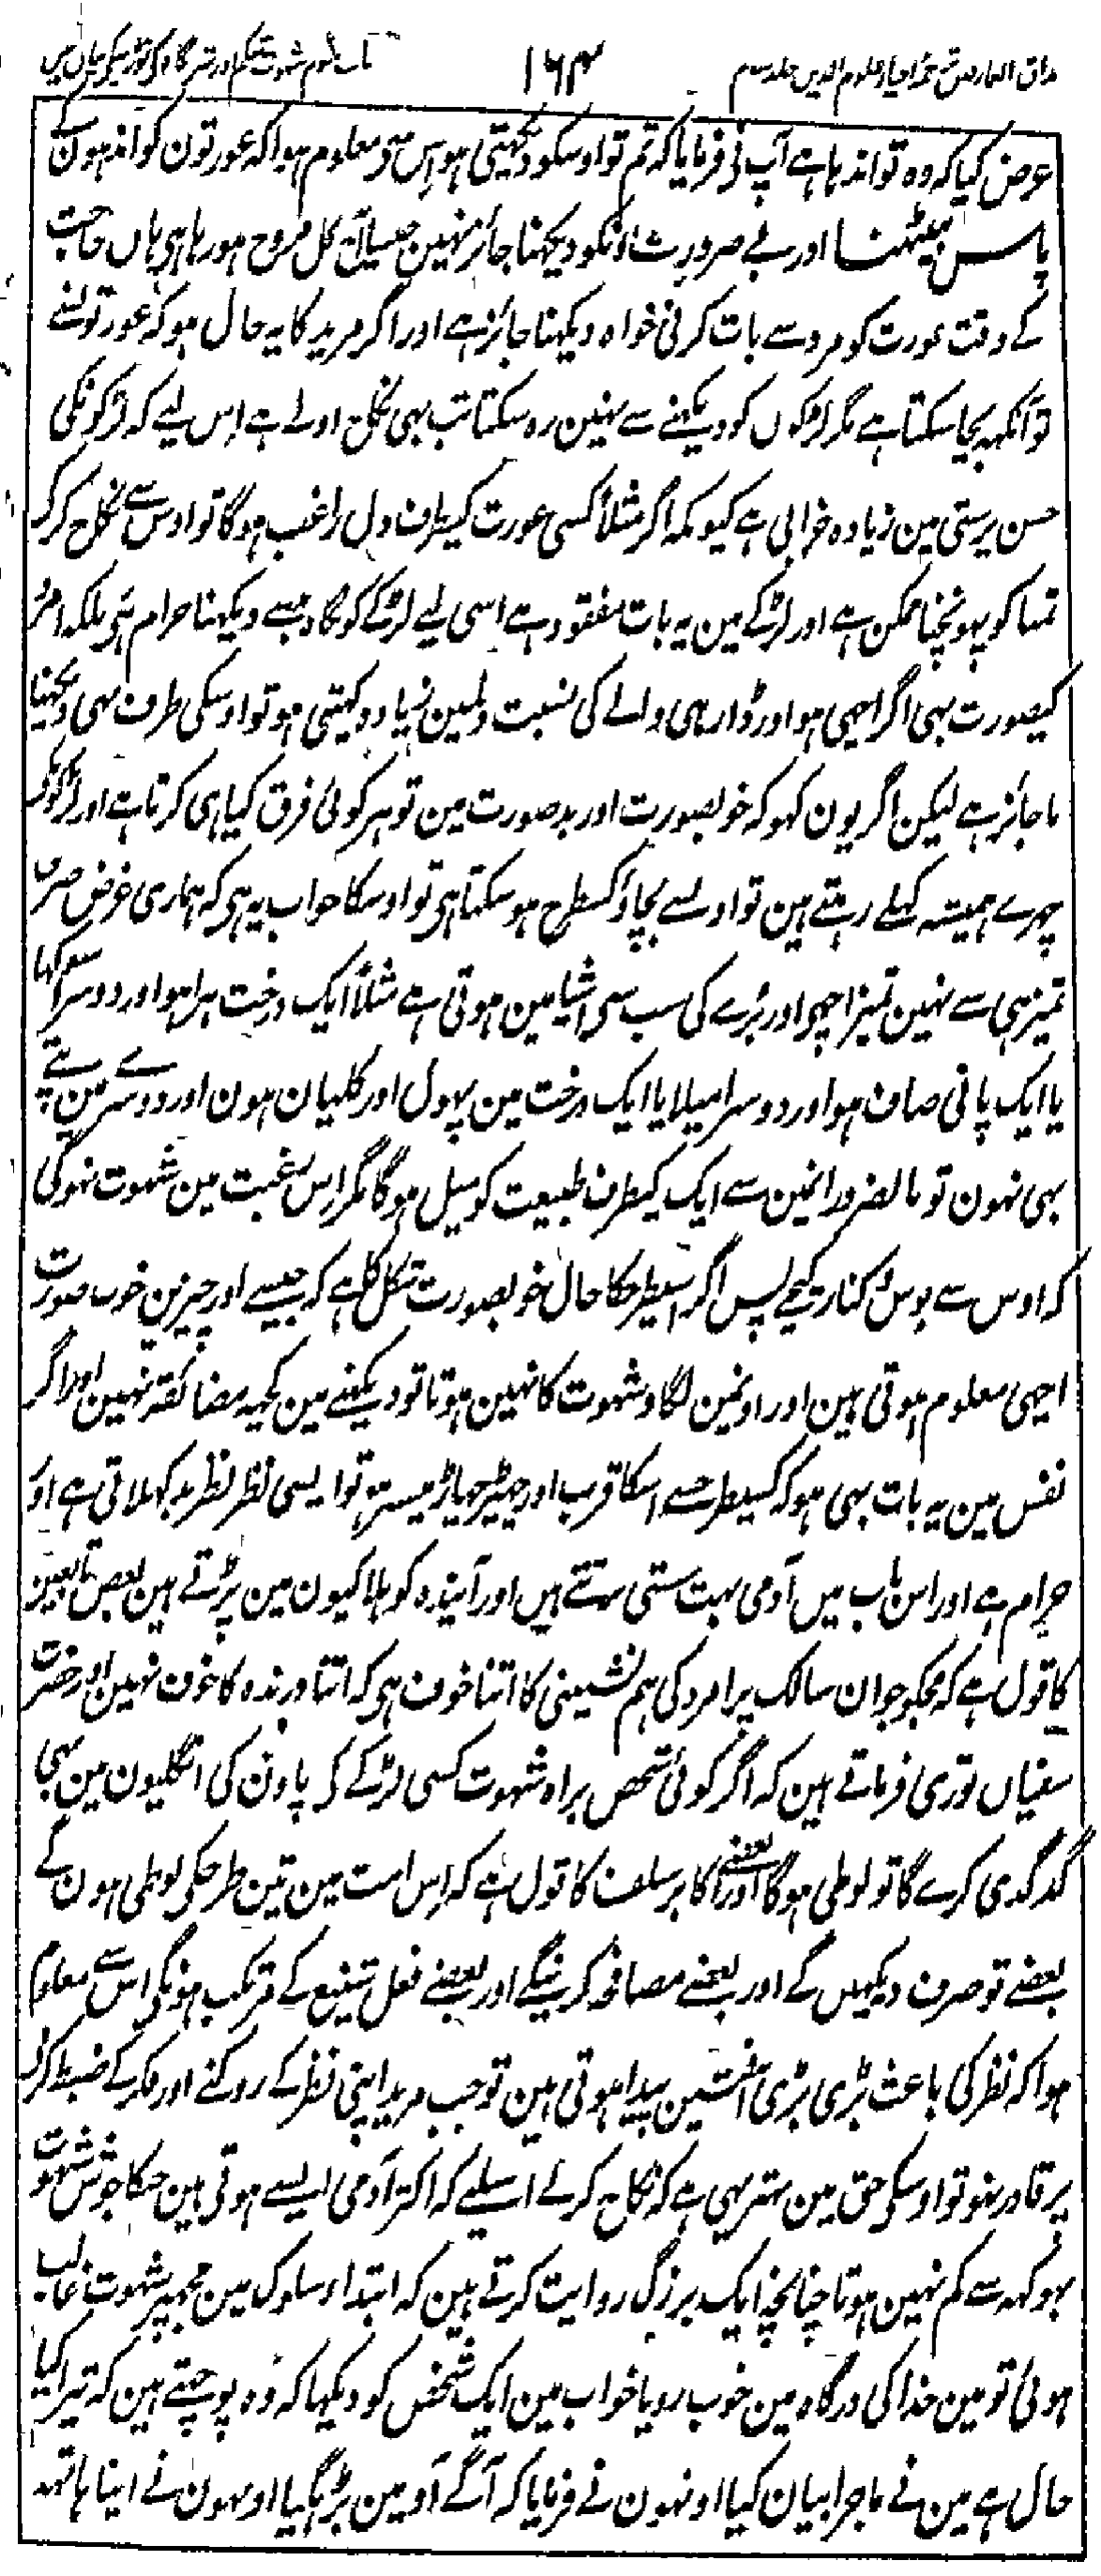 مذاق العارفین ترجمہ احیاء علوم الدین جلد سوم ۱۶۴ باب سوم شہوت شکم اور شرمگاہ کی توڑنیکی بیان میں
عرض کیا کہ وہ تو اندہا ہے آپ نی فرمایا کہ تم تو اوسکو دیکہتی ہو اس سی معلوم ہوا کہ عورتون کو اندہون کے
پاس بیٹھنا اور بے ضرورت اونکو دیکہنا جائز نہین جیسا آج کل مروج ہو رہا ہی ہاں حاجت
کے وقت عورت کو مرد سے بات کرنی خواہ دیکہنا جائز ہے اور اگر مرید کا یہ حال ہو کہ عورتونسے
تو آنکہہ بچا سکتا ہے مگر لڑکوں کو دیکہنے سے نہین رہ سکتا تب بہی نکاح اولے ہے اس لیے کہ لڑکونکی
حسن پرستی مین زیادہ خرابی ہے کیونکہ اگر مثلاً کسی عورت کیطرف دل راغب ہوگا تو اوس سے نکاح کرکر
تمنا کو پہونچنا ممکن ہے اور لڑکے مین یہ بات مفقود ہے اسی لیے لڑکے کو نگاہ بد سے دیکہنا حرام ہی بلکہ امرد
کیصورت بہی اگر اچہی ہو اور ڈاڑہی والے کی نسبت دلمین زیادہ کہبتی ہو تو اوسکی طرف بہی دیکہنا
ناجائز ہے لیکن اگر یون کہو کہ خوبصورت اور بدصورت مین تو ہر کوئی فرق کیا ہی کرتا ہے اور لڑکونکے
چہرے ہمیشہ کہلے رہتے ہین تو اوسے بچاؤ کسطرح ہو سکتا ہی تو اوسکا جواب یہ ہی کہ ہماری غرض صرف
تمیز ہی سے نہین تمیز اچہی اور بُرے کی سب سی اشیا مین ہوتی ہے مثلاً ایک درخت ہرا ہو اور دوسرا سوکہا
یا ایک پانی صاف ہو اور دوسرا میلا یا ایک درخت مین پہول اور کلیان ہون اور دوسرے مین پتے
بہی نہون تو بالضرور انمین سے ایک کیطرف طبیعت کو میل ہوگا مگر اس رغبت مین شہوت نہوگی
کہ اوس سے بوس و کنار کیجے پس اگر اسیطرحکا حال خوبصورت شکل کا ہے کہ جیسے اور چیزین خوب صورت
اچہی معلوم ہوتی ہین اور اونمین لگاو شہوت کا نہین ہوتا تو دیکہنے مین کچہہ مضائقہ نہین اور اگر
نفس مین یہ بات بہی ہو کہ کسیطرحسے اسکا قرب اور چہیڑ چہاڑ میسر ہو تو ایسی نظر نظر بد کہلاتی ہے اور
حرام ہے اور اس باب میں آدمی بہت سستی برتتے ہیں اور آیندہ کو بلاکیون مین پڑتے ہین بعض تابعین
کا قول ہے کہ مجکو جوان سالک پر امرد کی ہم نشینی کا اتنا خوف ہی کہ اتنا درندہ کا خوف نہین اور حضرت
سفیان ثوری فرماتے ہین کہ اگر کوئی شخص براہ شہوت کسی لڑکے کے پاون کی انگلیون مین بہی
گدگدی کرے گا تو لوطی ہوگا اور بعضے اکابر سلف کا قول ہے کہ اس امت مین تین طرحکی لوطی ہون گے
بعضے تو صرف دیکہیں گے اور بعضے مصافحہ کرینگے اور بعضے فعل شنیع کے مرتکب ہونگی اس سے معلوم
ہوا کہ نظر کی باعث بڑی بڑی آفتین پیدا ہوتی ہین تو جب مرید اپنی نظر کے روکنے اور فکر کے ضبط کرنے
پر قادر نہو تو اوسکی حق مین بہتر یہی ہے کہ نکاح کرلے اسلیے کہ اکثر آدمی ایسے ہوتی ہین جنکا جوش شہوت
بہوکہہ سے کم نہین ہوتا چنانچہ ایک بزرگ روایت کرتے ہین کہ ابتداء سلوک مین مجہپر شہوت غالب
ہوئی تو مین خدا کی درگاہ مین خوب رویا خواب مین ایک شخص کو دیکہا کہ وہ پوچہتے ہین کہ تیرا کیا
حال ہے مین نے ماجرا بیان کیا اونہون نے فرمایا کہ آگے آو مین بڑہ گیا اونہون نے اپنا ہاتہہ